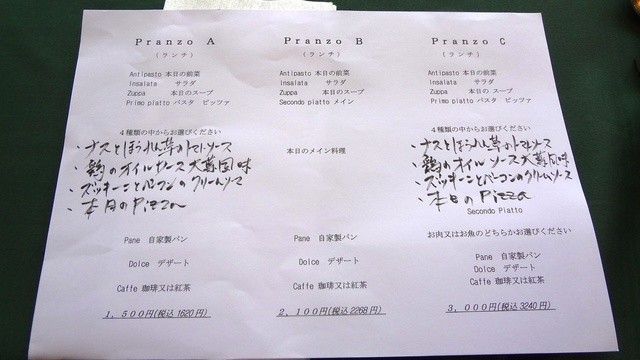 Pranzo A
(ランチ)
Antipasto 本日の前菜
Insalata サラダ
Zuppa 本日のスープ
Primo piatto パスタ ピッツァ
4種類の中からお選びください
・ナスとほうれん草のトマトソース
・鶏のオイルソース大葉風味
・ズッキーニとベーコンのクリームソース
・本日のPizza
Pane 自家製パン
Dolce デザート
Caffe 珈琲又は紅茶
1,500円(税込1620円)
Pranzo B
(ランチ)
Antipasto 本日の前菜
Insalata サラダ
Zuppa 本日のスープ
Secondo piatto メイン
本日のメイン料理
Pane 自家製パン
Dolce デザート
Caffe 珈琲又は紅茶
2,100円(税込2268円)
Pranzo C
(ランチ)
Antipasto 本日の前菜
Insalata サラダ
Zuppa 本日のスープ
Primo piatto パスタ ピッツァ
4種類の中からお選びください
・ナスとほうれん草のトマトソース
・鶏のオイルソース大葉風味
・ズッキーニとベーコンのクリームソース
・本日のPizza
Secondo Piatto
お肉又はお魚のどちらかお選びください
Pane 自家製パン
Dolce デザート
Caffe 珈琲又は紅茶
3,000円(税込3240円)